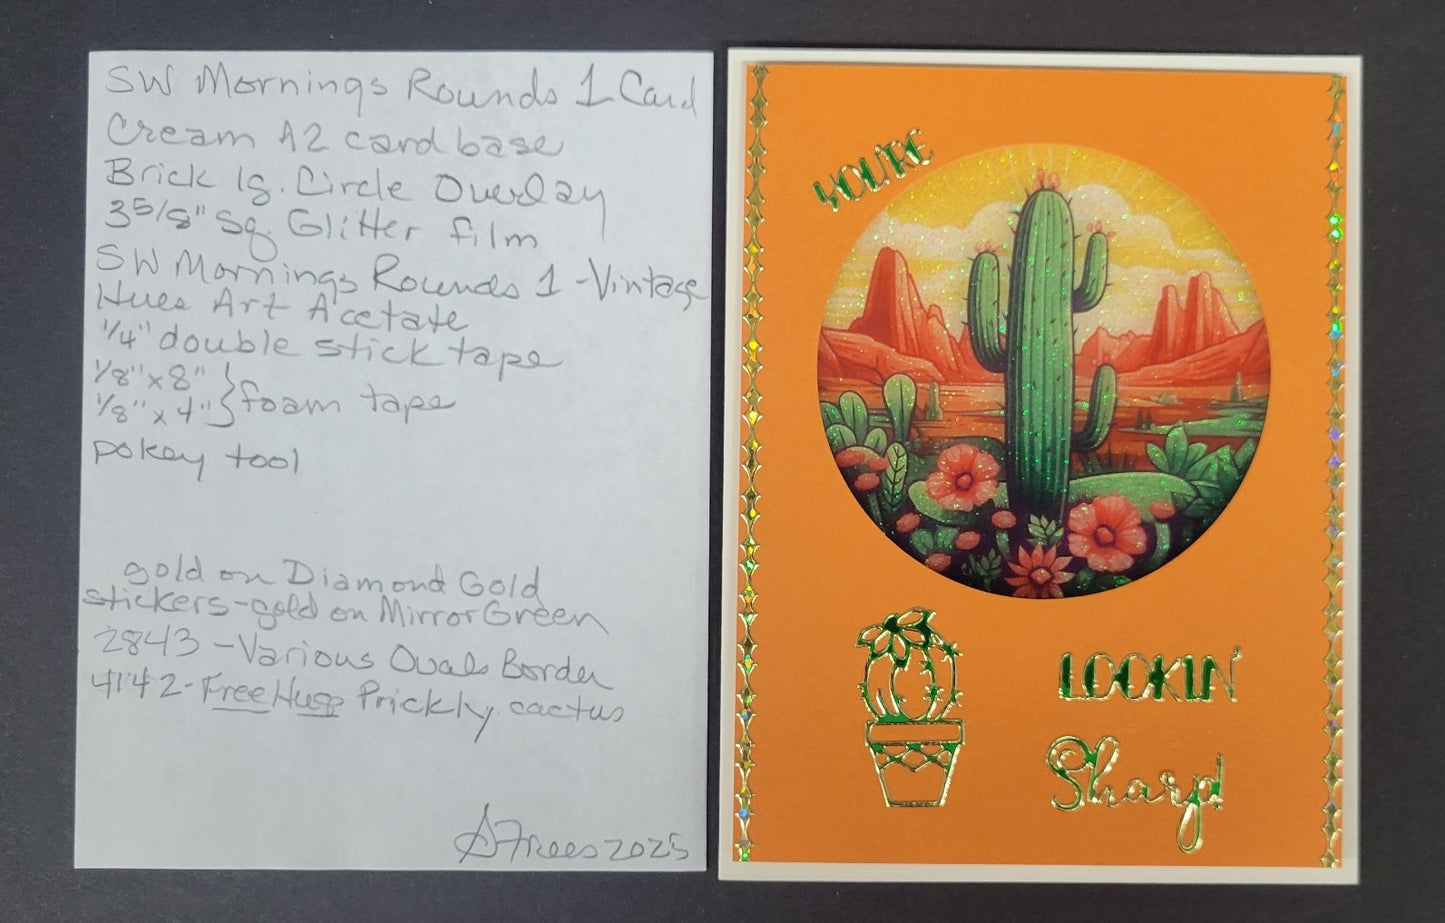 SW Mornings Rounds 1 Card
Cream A2 card base
Brick lg. Circle Overlay
3 5/8" sq. Glitter film
SW Mornings Rounds 1 - Vintage
Hues Art Acetate
1/4" double stick tape
1/8" x 8" } foam tape
1/8" x 4"
pokey tool
gold on Diamond Gold
stickers - gold on Mirror Green
2843 - Various Ovals Border
4142 - Free Hugs Prickly cactus
SFrees 2025
YOU'RE
LOOKIN'
Sharp!